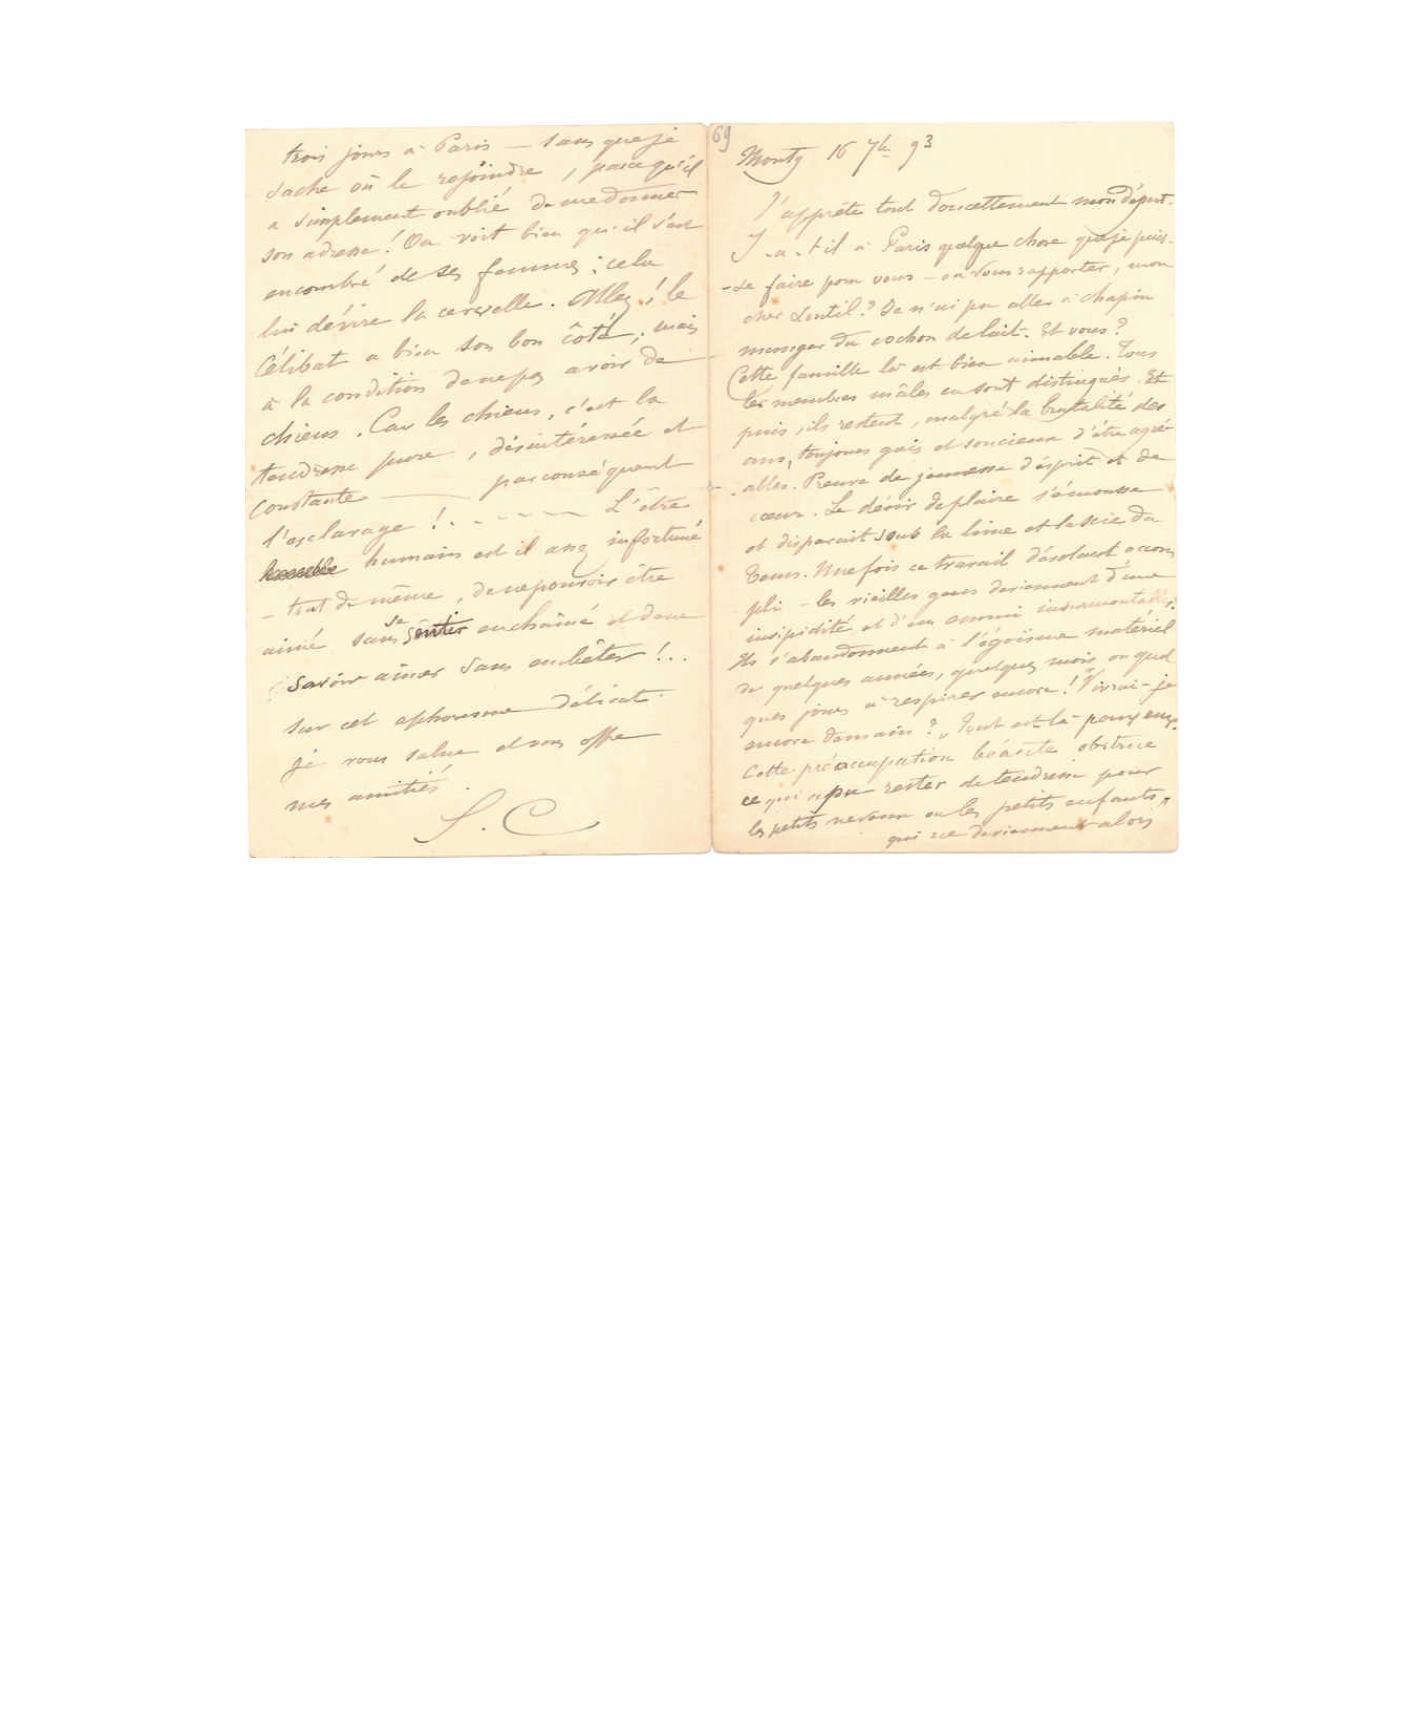 69
Monty 16 7bre 93
J'apprête tout doucettement mon départ.
Y-a-t-il à Paris quelque chose que je puis-
-se faire pour vous - ou vous rapporter, mon
cher Lentil? Je n'ai pu aller à Chapin
manger du cochon de lait. Et vous?
Cette famille là est bien aimable. Tous
les membres mâles en sont distingués. Et
puis, ils restent, malgré la brutalité des
ans, toujours gais et soucieux d'être agré-
ables. Preuve de jeunesse d'esprit et de
cœur. Le désir de plaire s'émousse
et disparait sous la lime et la scie du
Temps. Une fois ce travail désolant accom
pli - les vieilles gens deviennent d'une
insipidité et d'un ennui insurmontables.
Ils s'abandonnent à l'égoïsme matériel
de quelques années, quelques mois, ou quel
ques jours à respirer encore! "Vivrai-je
encore demain?" Tout est là - pour eux.
Cette préoccupation béante obstrue
ce qui a pu rester de tendresse pour
les petits neveux ou les petits enfants,
qui ne deviennent alors
trois jours à Paris - sans que je
sache où le rejoindre, parce qu'il
a simplement oublié de me donner
son adresse! On voit bien qu'il s'est
encombré de ses femmes: cela
lui dévire la cervelle. Allez! le
Célibat a bien son bon côté; mais
à la condition de ne pas avoir de
chiens. Car les chiens, c'est la
tendresse pure, désintéressée et
constante par conséquent
l'esclavage! - - - - - L'être
humain est il assez infortuné
- tout de même, de ne pouvoir être
aimé sans se sentir enchaîné et de ne
savoir aimer sans embêter!..
sur cet aphorisme délicat
je vous salue et vous offre
mes amitiés.
S. C